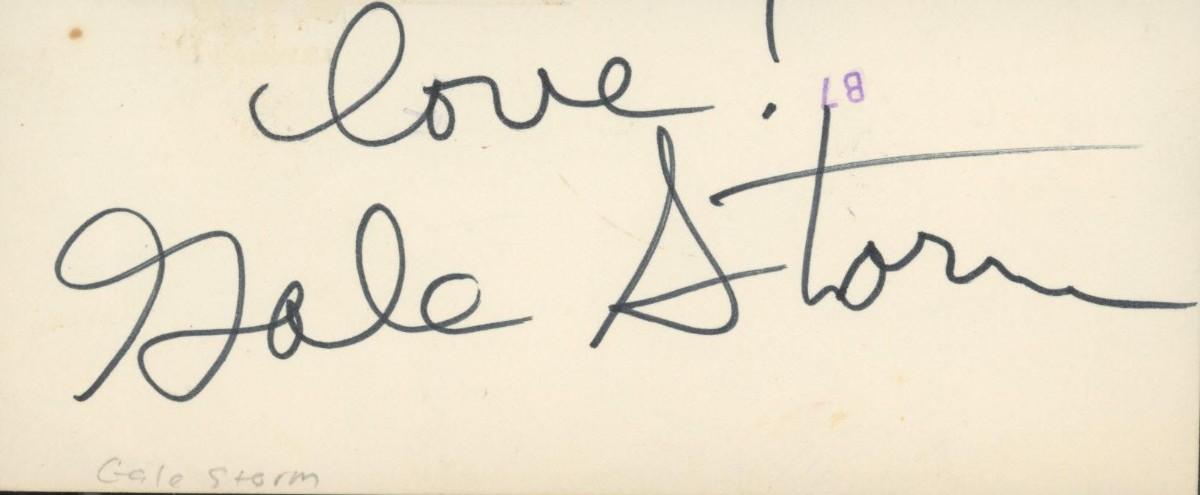 love!
87
Gale Storm
Gale Storm